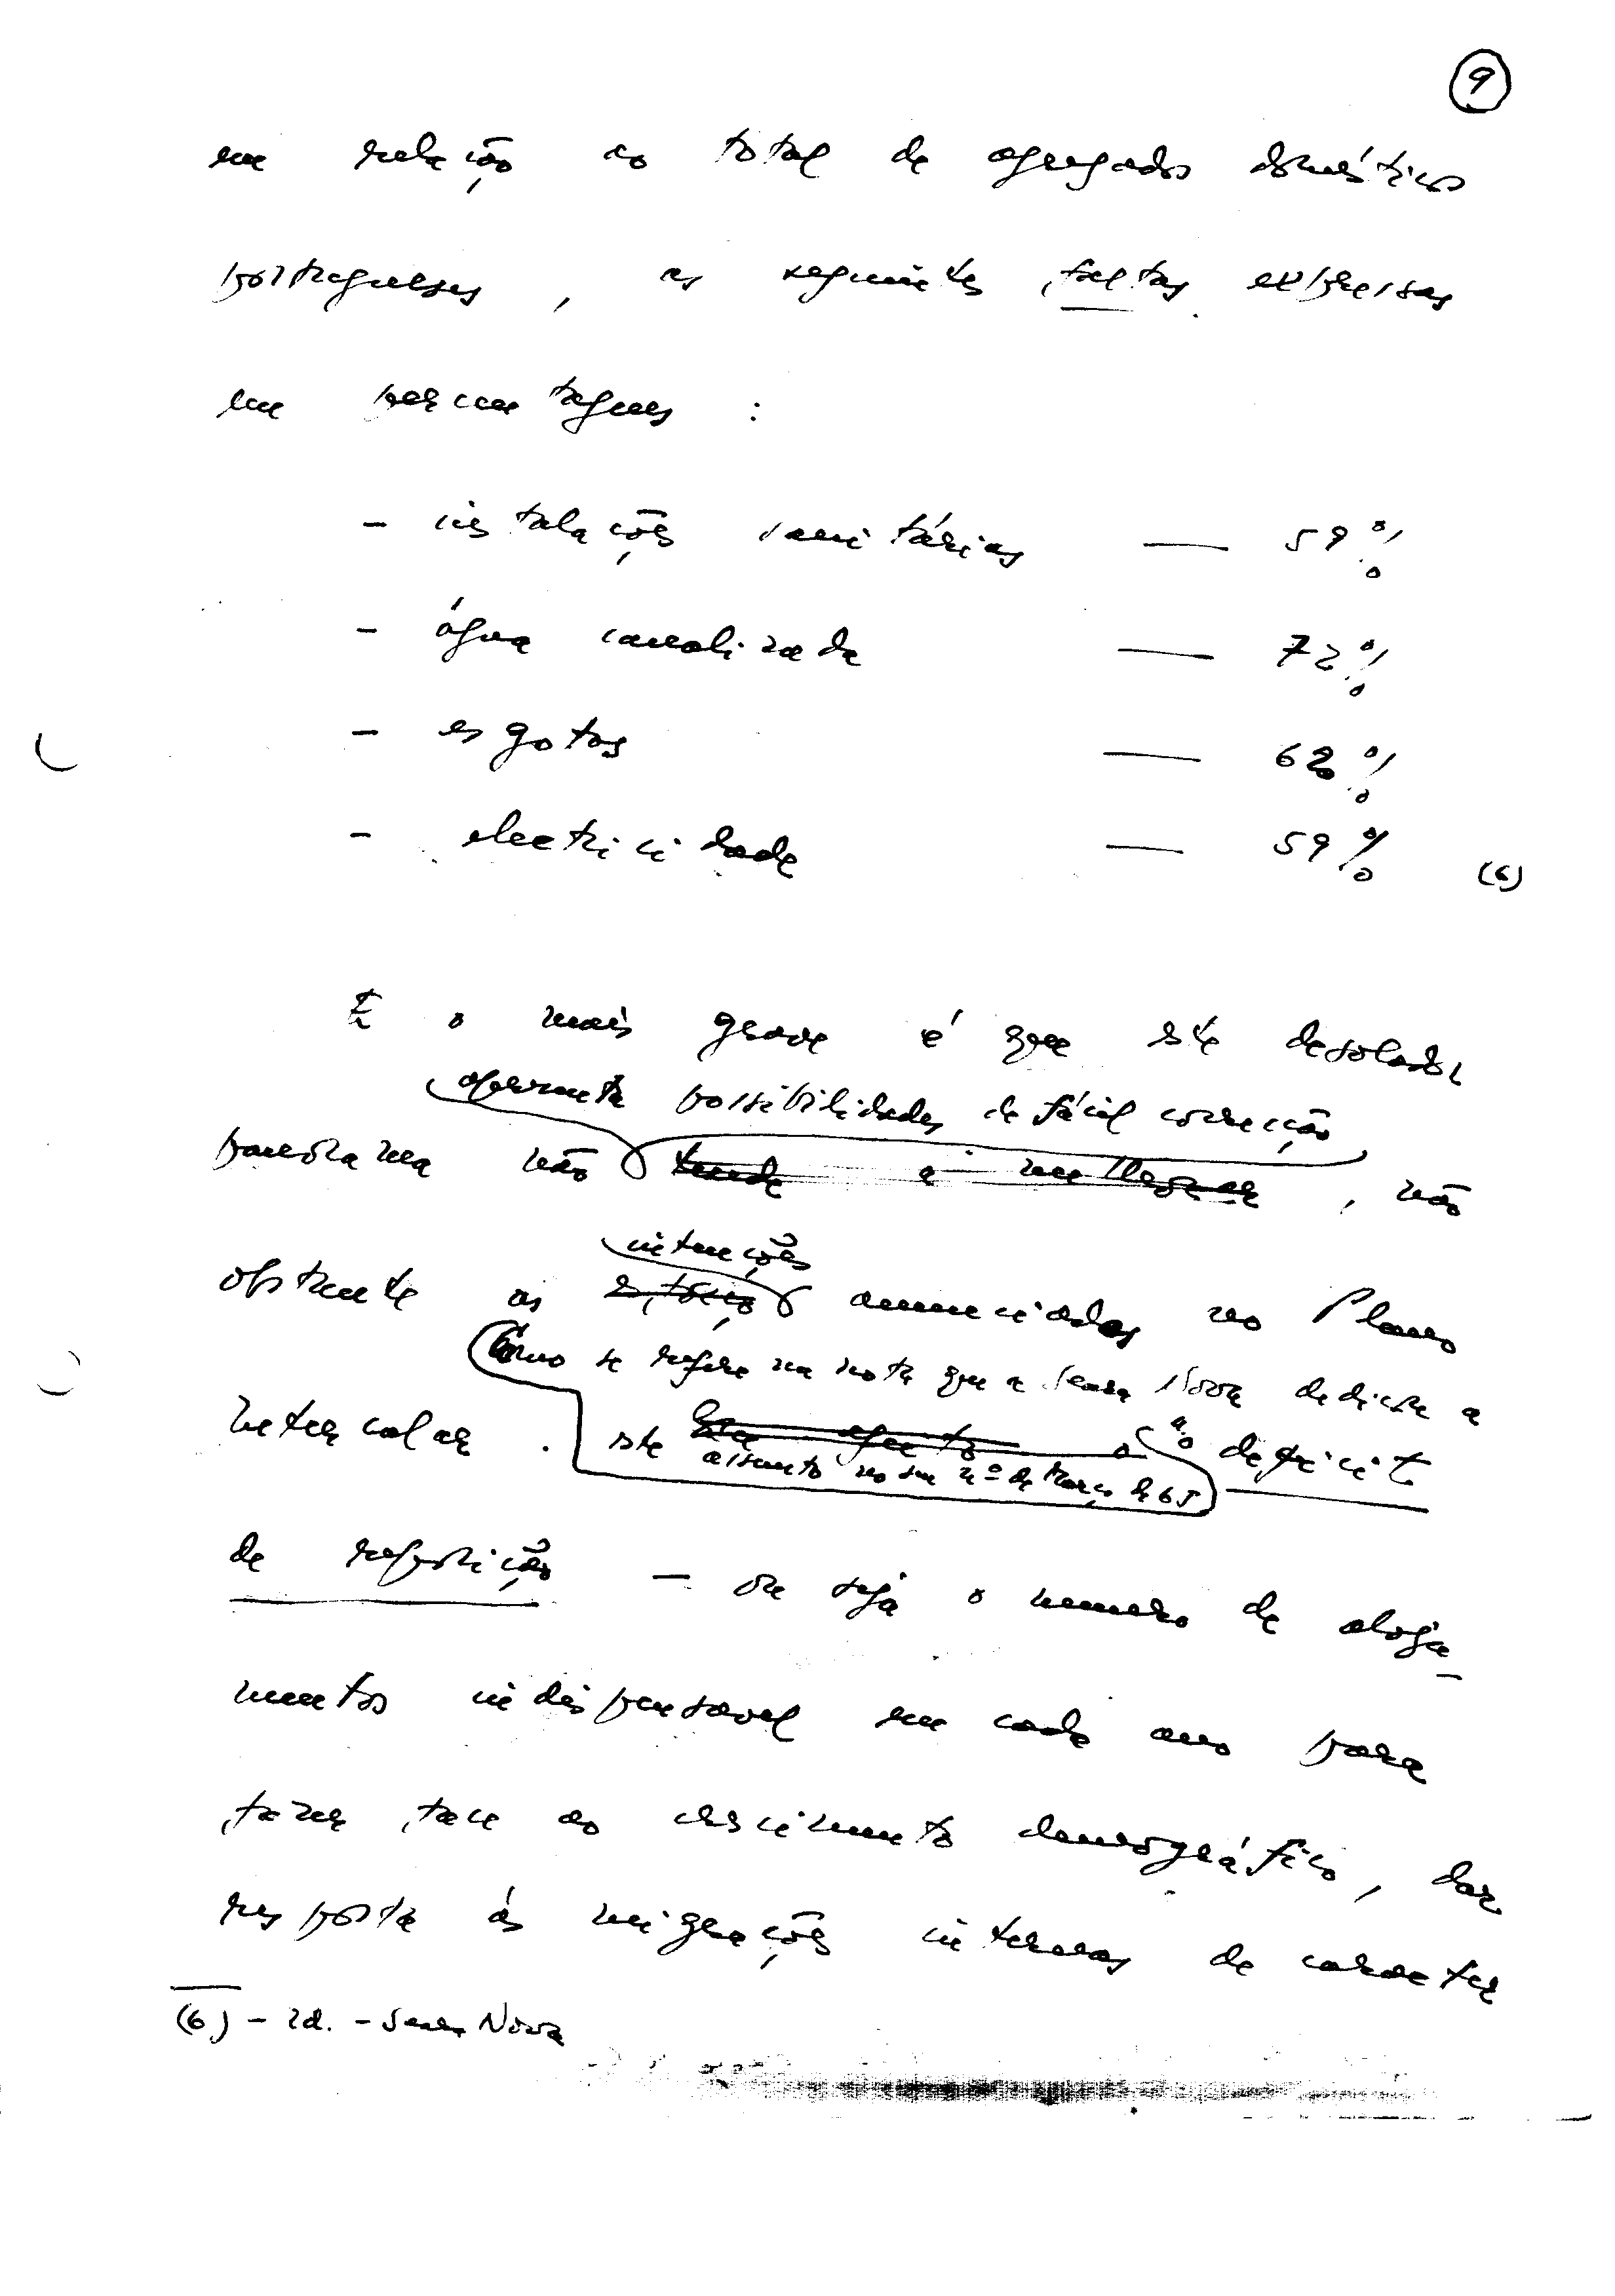 9
em relação ao total de agregados domésticos
portugueses, as seguintes faltas expressas
em percentagens :
- instalações sanitárias — 59 %
- água canalizada — 72 %
- esgotos — 62 %
- electricidade — 59 % (6)
E o mais grave é que este desolador
apresenta possibilidades de fácil correcção
panorama não tende a melhorar, não
intenções
obstante as anunciadas no Plano
Como se refere na nota que a Seara Nova dedicou a
Intercalar. este o deficit
assunto no seu nº de Março de 65
de reposição — ou seja o numero de aloja-
mentos indispensavel em cada ano para
fazer face ao crescimento demográfico, dar
resposta ás migrações internas de caracter
(6) - Id. - Seara Nova